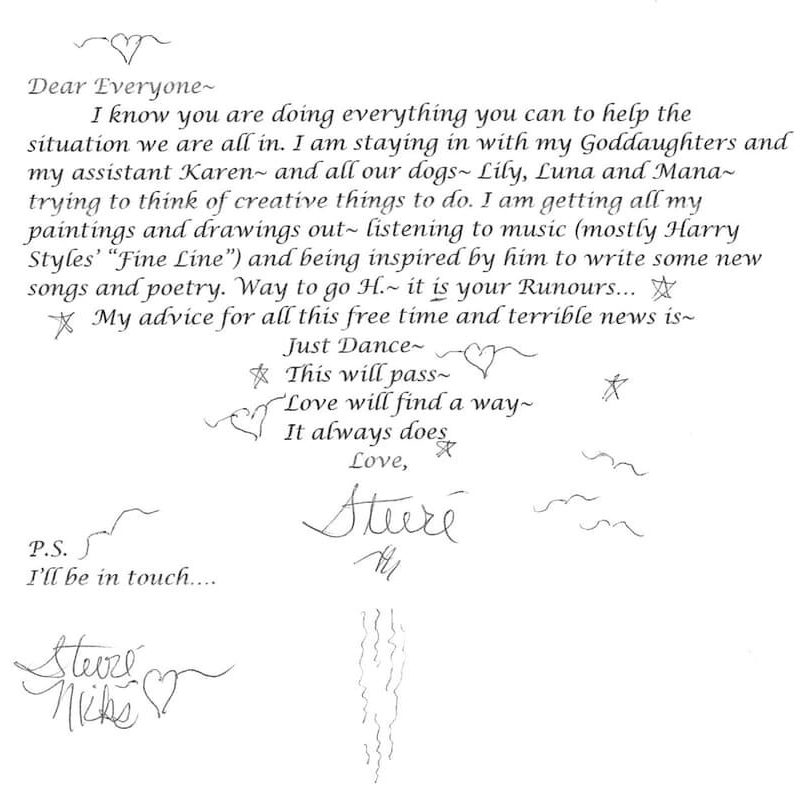 Dear Everyone~
I know you are doing everything you can to help the
situation we are all in. I am staying in with my Goddaughters and
my assistant Karen~ and all our dogs~ Lily, Luna and Mana~
trying to think of creative things to do. I am getting all my
paintings and drawings out~ listening to music (mostly Harry
Styles' "Fine Line") and being inspired by him to write some new
songs and poetry. Way to go H.~ it is your Runours...
My advice for all this free time and terrible news is~
Just Dance~
This will pass~
Love will find a way~
It always does
Love,
Stevie
P.S.
I'll be in touch....
Stevie
Nicks